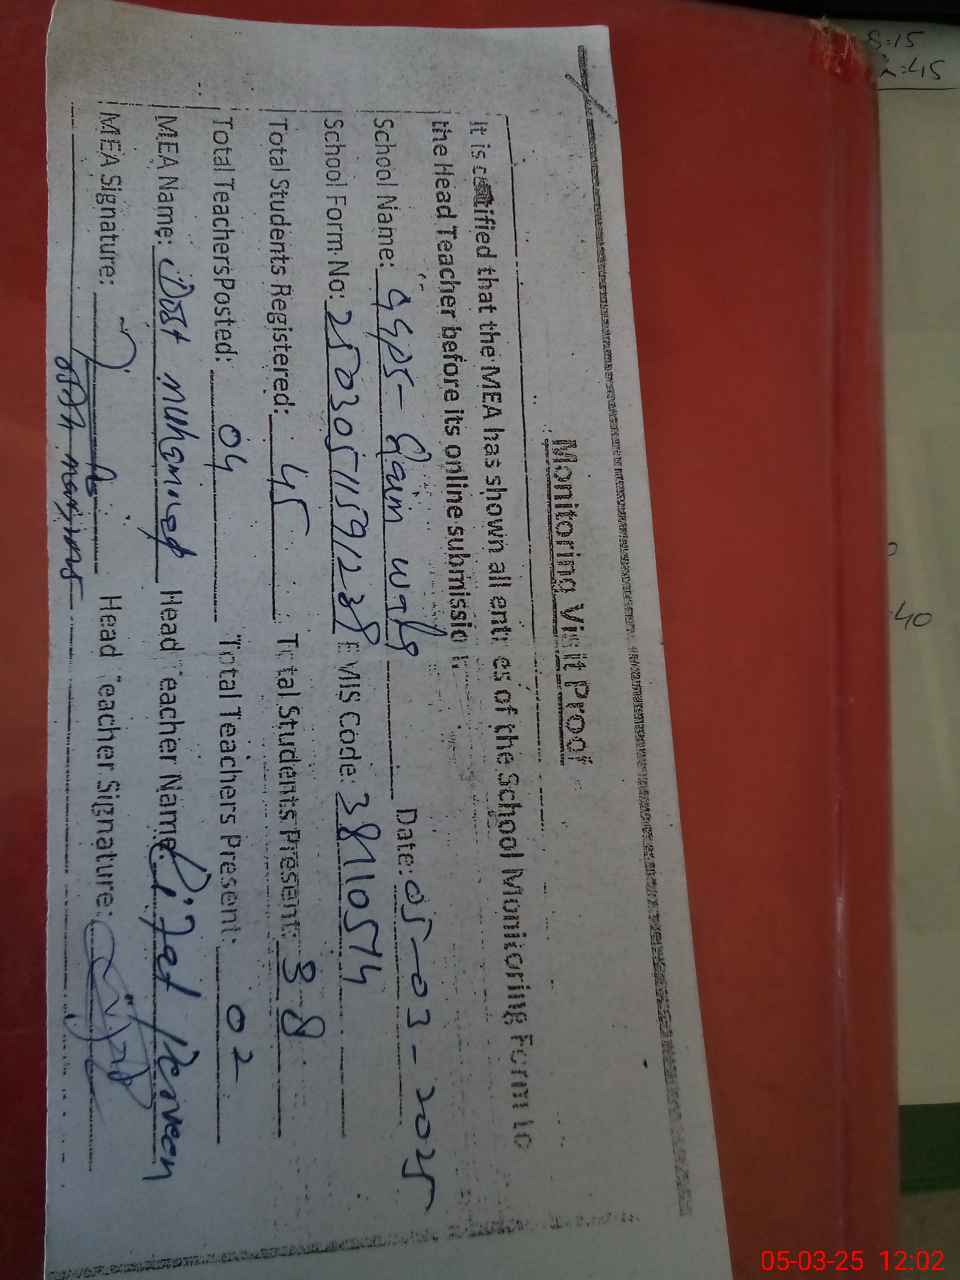 Monitoring Visit Proof
It is certified that the MEA has shown all entries of the School Monitoring Form to
the Head Teacher before its online submission
School Name: GGPS- Qaim wala Date: 05-03-2025
School Form No: 25030511591238 EMIS Code: 38110574
Total Students Registered: 45 Total Students Present: 38
Total Teachers Posted: 04 Total Teachers Present: 02
MEA Name: Dost muhammad Head Teacher Name: Riffat Perveen
MEA Signature: Head Teacher Signature:
8:15
40
05-03-25 12:02